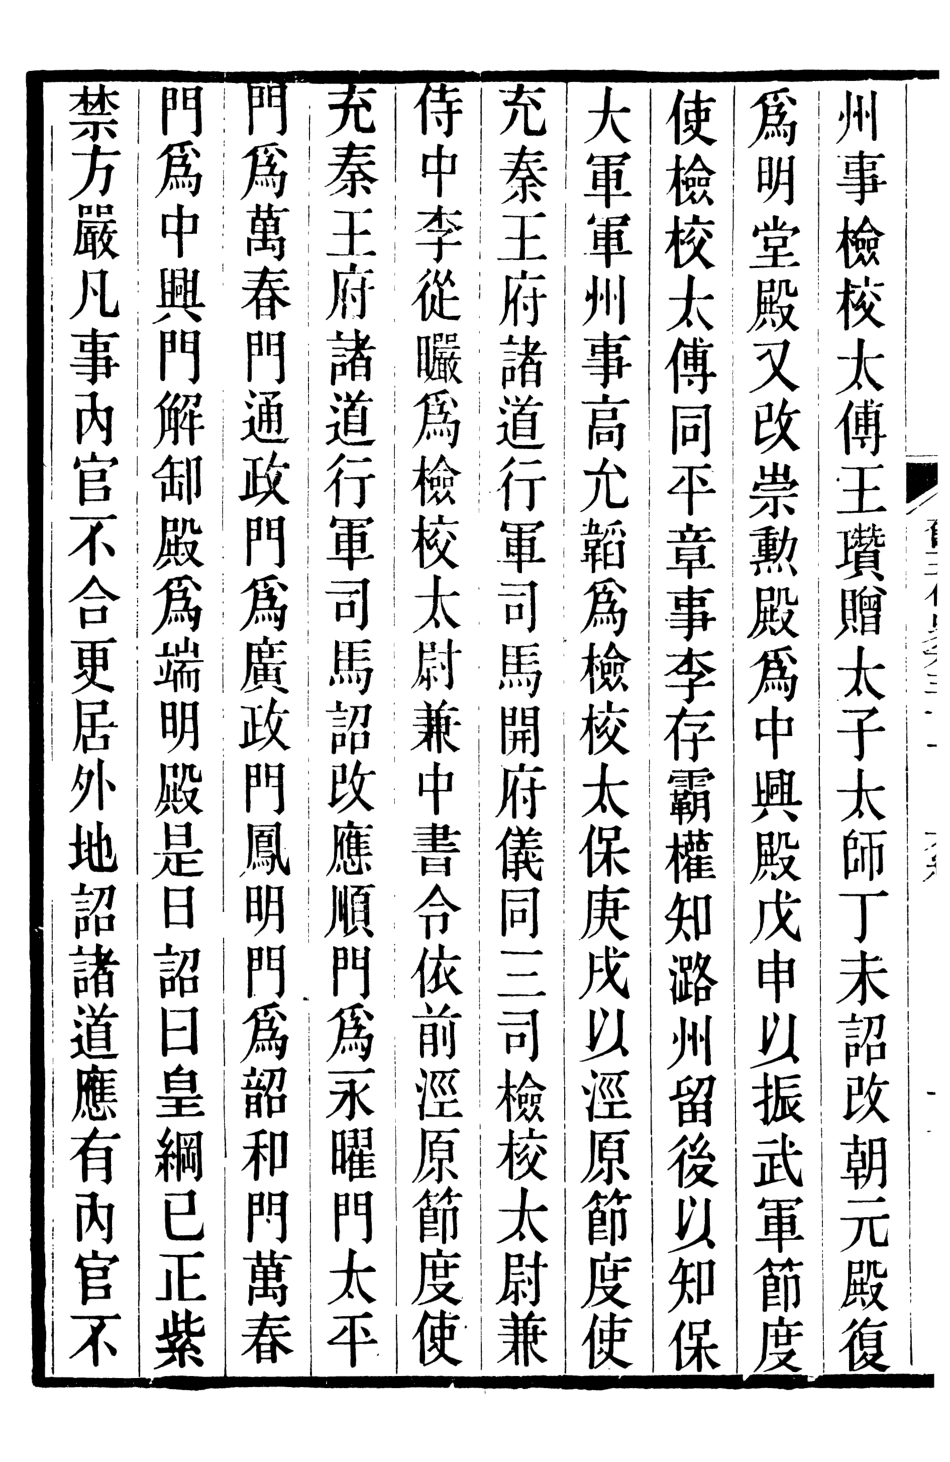 州事檢校太傅王瓚贈太子太師丁未詔改朝元殿復
爲明堂殿又改崇勲殿爲中興殿戊申以振武軍節度
使檢校太傅同平章事李存霸權知潞州留後以知保
大軍軍州事高允韜爲檢校太保庚戌以涇原節度使
充秦王府諸道行軍司馬開府儀同三司檢校太尉兼
侍中李從曮爲檢校太尉兼中書令依前涇原節度使
充秦王府諸道行軍司馬詔改應順門爲永曜門太平
門爲萬春門通政門爲廣政門鳳明門爲韶和門萬春
門爲中興門解卸殿爲端明殿是日詔曰皇綱已正紫
禁方嚴凡事內官不合更居外地詔諸道應有內官不